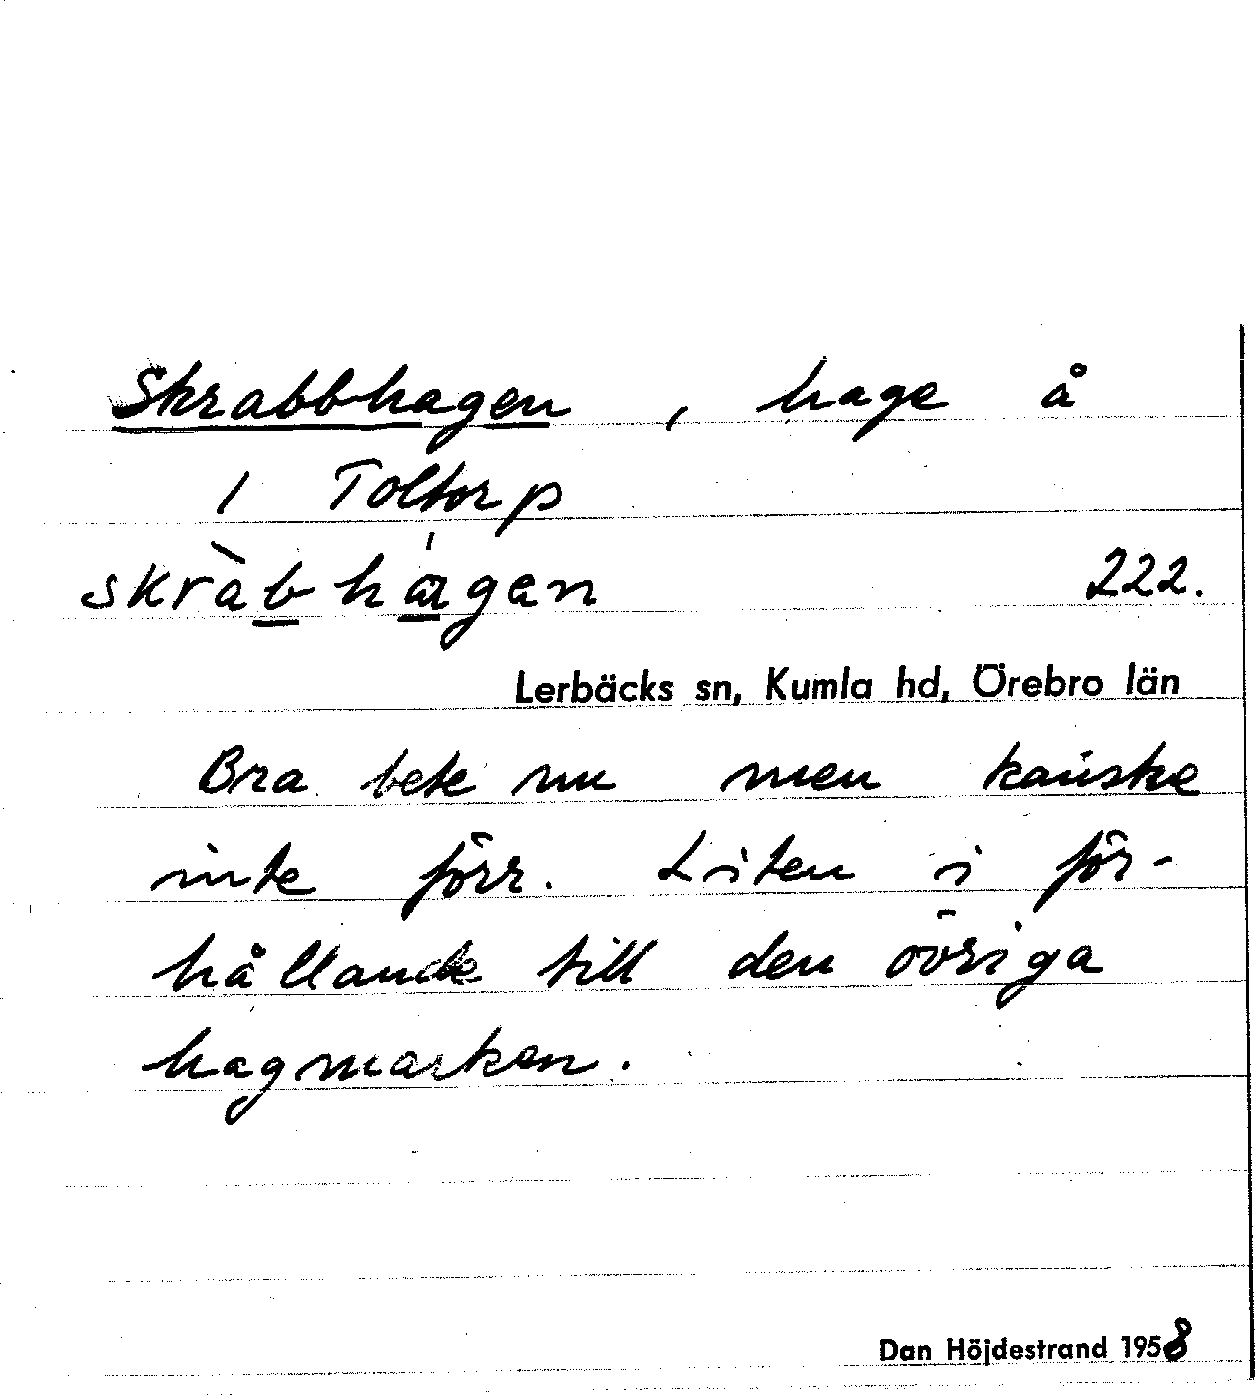 Skrabbhagen, hage å
1 Toltorp
skràb hágen 222.
Lerbäcks sn, Kumla hd, Örebro län
Bra bete nu men kanske
inte förr. Liten i för-
hållande till den övriga
hagmarken.
Dan Höjdestrand 1958